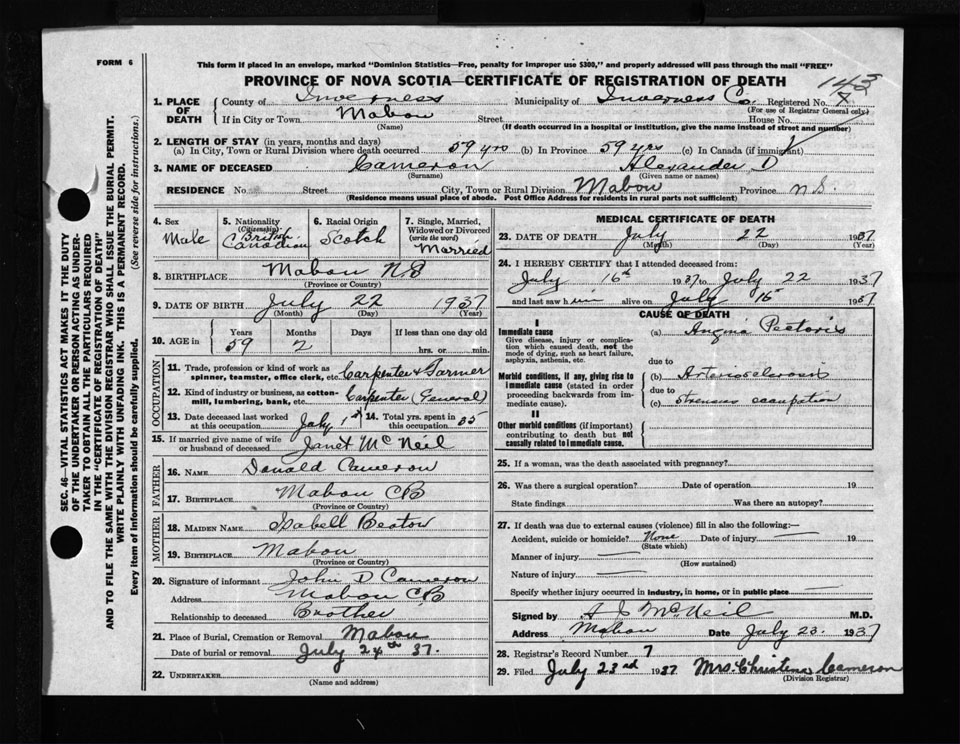 FORM 6
This form if placed in an envelope, marked "Dominion Statistics—Free, penalty for improper use $300," and properly addressed will pass through the mail "FREE"
PROVINCE OF NOVA SCOTIA—CERTIFICATE OF REGISTRATION OF DEATH
1. PLACE OF DEATH
County of Inverness Municipality of Inverness Co. Registered No.
(For use of Registrar General only)
If in City or Town Mabou Street House No.
(Name) (If death occurred in a hospital or institution, give the name instead of street and number)
2. LENGTH OF STAY (in years, months and days)
(a) In City, Town or Rural Division where death occurred 59 yrs (b) In Province 59 yrs (c) In Canada (if immigrant)
3. NAME OF DECEASED Cameron Alexander D
(Surname) (Given name or names)
RESIDENCE No. Street City, Town or Rural Division Mabou Province N.S.
(Residence means usual place of abode. Post Office Address for residents in rural parts not sufficient)
4. Sex Male
5. Nationality (Citizenship) British Canadian
6. Racial Origin Scotch
7. Single, Married, Widowed or Divorced (write the word) Married
8. BIRTHPLACE Mabou NS
(Province or Country)
9. DATE OF BIRTH July 22 1937
(Month) (Day) (Year)
10. AGE in Years 59 Months 2 Days If less than one day old hrs. or min.
OCCUPATION
11. Trade, profession or kind of work as spinner, teamster, office clerk, etc. Carpenter & Farmer
12. Kind of industry or business, as cotton-mill, lumbering, bank, etc. Carpenter (General)
13. Date deceased last worked at this occupation July 1st
14. Total yrs. spent in this occupation 35
15. If married give name of wife or husband of deceased Janet McNeil
FATHER
16. NAME Donald Cameron
17. BIRTHPLACE Mabou CB
(Province or Country)
MOTHER
18. MAIDEN NAME Isabell Beaton
19. BIRTHPLACE Mabou
(Province or Country)
20. Signature of informant John D Cameron
Address Mabou CB
Relationship to deceased Brother
21. Place of Burial, Cremation or Removal Mabou
Date of burial or removal July 24th 37.
22. UNDERTAKER
(Name and address)
MEDICAL CERTIFICATE OF DEATH
23. DATE OF DEATH July 22 1937
(Month) (Day) (Year)
24. I HEREBY CERTIFY that I attended deceased from:
July 16th 1937 to July 22 1937
and last saw him alive on July 1937
CAUSE OF DEATH
I
Immediate cause
Give disease, injury or complication which caused death, not the mode of dying, such as heart failure, asphyxia, asthenia, etc.
(a) Angina Pectoris
due to
Morbid conditions, if any, giving rise to immediate cause (stated in order proceeding backwards from immediate cause).
(b) Arteriosclerosis
due to
(c) strenuous occupation
II
Other morbid conditions (if important) contributing to death but not causally related to immediate cause.
25. If a woman, was the death associated with pregnancy?
26. Was there a surgical operation? Date of operation 19
State findings Was there an autopsy?
27. If death was due to external causes (violence) fill in also the following:—
Accident, suicide or homicide? None Date of injury 19
(State which)
Manner of injury
(How sustained)
Nature of injury
Specify whether injury occurred in industry, in home, or in public place
Signed by McNeil M.D.
Address Mabou Date July 23. 1937
28. Registrar's Record Number 7
29. Filed July 23rd 1937 Mrs. Christina Cameron
(Division Registrar)
SEC. 46—VITAL STATISTICS ACT MAKES IT THE DUTY
OF THE UNDERTAKER OR PERSON ACTING AS UNDER-
TAKER TO OBTAIN ALL THE PARTICULARS REQUIRED
IN THE "CERTIFICATE OF REGISTRATION OF DEATH"
AND TO FILE THE SAME WITH THE DIVISION REGISTRAR WHO SHALL ISSUE THE BURIAL PERMIT.
WRITE PLAINLY WITH UNFADING INK. THIS IS A PERMANENT RECORD.
Every item of information should be carefully supplied. (See reverse side for instructions.)